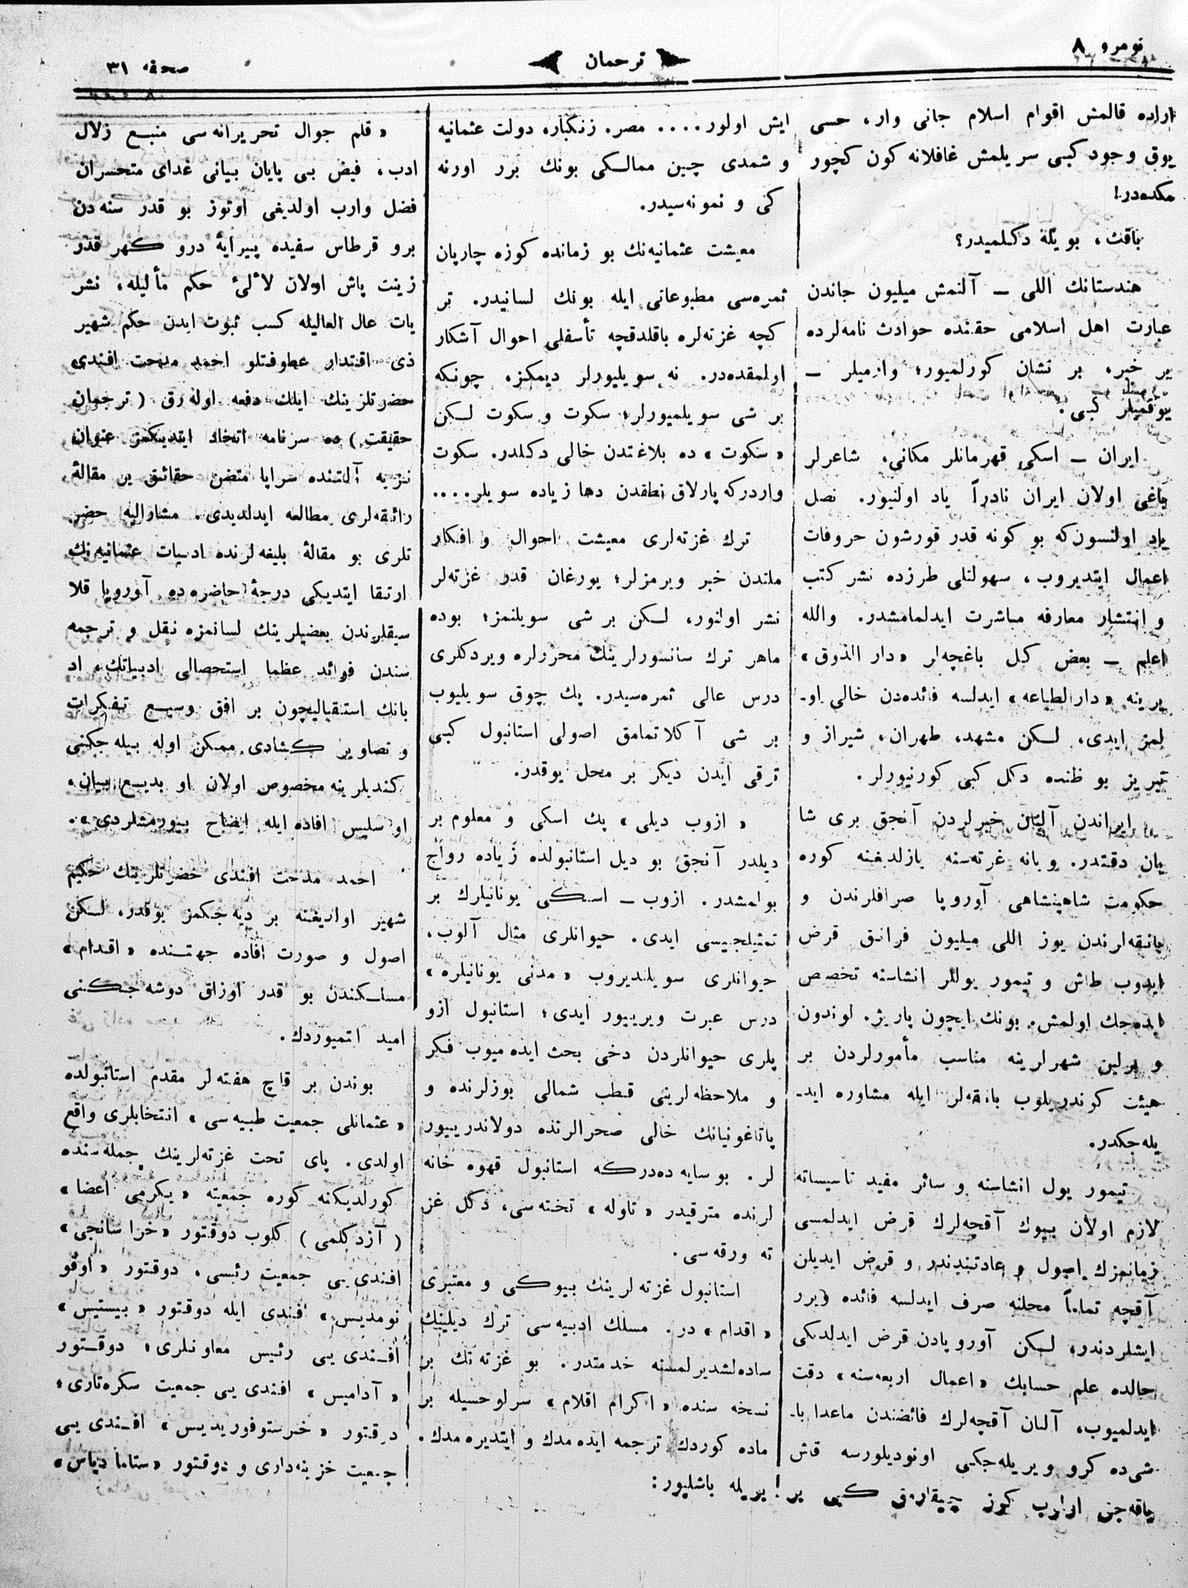 نومرو ٨
ترجمان
صحفه ٣١
اراده قالمش اقوام اسلام جانی وار، حسی
یوق وجود کبی سریلمش غافلانه کون کچور
مکده‌در!
باقڭ، بویله دکلمیدر؟
هندستانك اللی ــ آلتمش میلیون جاندن
عبارت اهل اسلامی حقنده حوادث نامه‌لرده
بر خبر، بر نشان کورلمیور؛ وارمیلر ــ
یوقمیلر کبی.
ایران ــ اسکی قهرمانلر مکانی، شاعرلر
باغی اولان ایران نادراً یاد اولنیور. نصل
یاد اولنسون‌که بو کونه قدر قورشون حروفات
اعمال ایتدیروب، سهولتلی طرزده نشر کتب
و انتشار معارفه مباشرت ایدلمامشدر. والله
اعلم ــ بعض کبل باغچه‌لر «دار الذوق»
یرینه «دار الطباعه» ایدلسه فائده‌دن خالی او۔
لمز ایدی، لکن مشهد، طهران، شیراز و
تبریز بو ظنده دکل کبی کورنیورلر.
ایراندن آلنان خبرلردن آنجق بری شا
یان دقتدر. ویانه غزته‌سنه یازلدیغنه کوره
حکومت شاهینشاهی آوروپا صرافلرندن و
بانقه‌لرندن یوز اللی میلیون فرانق قرض
ایدوب طاش و تیمور یوللر انشاسنه تخصیص
ایده‌جك اولمش. بونك ایچون پاریژ، لوندون
و برلین شهرلرینه مناسب مأمورلردن بر
هیئت کوندریلوب بانقه‌لر ایله مشاوره اید۔
یله‌جکدر.
تیمور یول انشاسنه و سائر مفید تاسیساته
لازم اولان بیوك آقچه‌لرك قرض ایدلمسی
زمانمزك اصول و عادتندندر و قرض ایدیلن
آقچه تماماً محلنه صرف ایدلسه فائده ویرر
ایشلردندر، لکن آوروپادن قرض ایدلدکی
حالده علم حسابك «اعمال اربعه‌سنه» دقت
ایدلمیوب، آلنان آقچه‌لرك فائضندن ماعدا با۔
شی‌ده کرو ویریله‌جکی اونودیلورسه قاش
یاقه‌جق اولوب کوز چیقارمق کبی بر
ایش اولور.... مصر، زنکبار، دولت عثمانیه
و شمدی چین ممالکی بونك برر اورنه
کی و نمونه‌سیدر.
معیشت عثمانیه‌نك بو زمانده کوزه چارپان
ثمره‌سی مطبوعاتی ایله بونك لسانیدر. تر
کچه غزته‌لره باقلدقچه تأسفلی احوال آشکار
اولمقده‌در. نه سویلیورلر دیمکز، چونکه
بر شی سویلمیورلر؛ سکوت و سکوت لکن
«سکوت» ده بلاغتدن خالی دکلدر. سکوت
واردرکه پارلاق نطقدن دها زیاده سویلر....
ترك غزته‌لری معیشت احوال و افکار
ملتدن خبر ویرمزلر؛ یورغان قدر غزته‌لر
نشر اولنور، لکن بر شی سویلنمز؛ بوده
ماهر ترك سانسورلرینك محررلره ویردکلری
درس عالی ثمره‌سیدر. پك چوق سویلیوب
بر شی آکلاتمامق اصولی استانبول کبی
ترقی ایدن دیکر بر محل یوقدر.
«ازوب دیلی» پك اسکی و معلوم بر
دیلدر آنجق بو دیل استانبولده زیاده رواج
بولمشدر. ازوب ــ اسکی یونانیلرك بر
تمثیلجیسی ایدی. حیوانلری مثال آلوب،
حیوانلری سویلندیروب «مدنی یونانیلره»
درس عبرت ویرییور ایدی؛ استانبول ازو
پلری حیوانلردن دخی بحث ایده‌میوب فکر
و ملاحظه‌لرینی قطب شمالی بوزلرنده و
پاتاغونیانك خالی صحرالرنده دولاندریبور
لر. بو سایه‌ده‌درکه استانبول قهوه خانه
لرنده مترقیدر «تاوله» تخته‌سی، دکل غز
ته ورقه‌سی.
استانبول غزته‌لرینك بیوکی و معتبری
«اقدام» در. مسلك ادبیه‌سی ترك دیلینك
ساده‌لشدیرلمسنه خدمتدر. بو غزته‌نك بر
نسخه سنده «اکرام اقلام» سرلوحسیله بر
ماده کوردك. ترجمه ایده‌مدك و ایتدیره‌مدك.
بریله باشلیور:
«قلم جوال تحریرانه‌سی منبع زلال
ادب، فیض بی پایان بیانی غدای متحسران
فضل وارب اولدیغی اوتوز بو قدر سنه‌دن
برو قرطاس سفیده پیرایهٔ درو کهر قدر
زینت پاش اولان لألئ حکم مألیله، نشر
یات عال العالیله کسب ثبوت ایدن حکم شهیر
ذی اقتدار عطوفتلو احمد مدحت افندی
حضرتلرینك ایلك دفعه اوله‌رق (ترجمان
حقیقت) ده سرنامه اتخاذ ایتدیکمز عنوان
نزیه آلتنده سراپا متضمن حقائق بر مقالهٔ
رائقه‌لری مطالعه ایدلدیدی. مشارالیه حضر
تلری بو مقالهٔ بلیغه‌لرنده ادبیات عثمانیه‌نك
ارتقا ایتدیکی درجهٔ حاضره‌ده آوروپا قلا
سیقلرندن بعضیلرینك لسانمزه نقل و ترجمه
سندن فوائد عظما استحصالی ادبیاتك، اد
بانك استقبالیچون بر افق وسیع تفکرات
و تصاویر کشادی ممکن اوله بیله‌جکنی
کندیلرینه مخصوص اولان او بدیع بیان،
او سلیس افاده ایله ایضاح بیورمشلردی».
احمد مدحت افندی حضرتلرینك حکیم
شهیر اولدیغنه بر دیه‌جکمز یوقدر، لکن
اصول و صورت افاده جهتنده «اقدام»
مسلکندن بو قدر اوزاق دوشه‌جکنی
امید اتمیوردك.
بوندن بر قاچ هفته‌لر مقدم استانبولده
«عثمانلی جمعیت طبیه‌سی» انتخابلری واقع
اولدی. پای تخت غزته‌لرینك جمله‌سنده
کورلدیکنه کوره جمعیته «یکرمی اعضا»
(آزدکلمی) کلوب دوقتور «خزا سانجی»
افندی یی جمعیت رئیسی، دوقتور «اوقو
نومدیس» افندی ایله دوقتور «بیستیس»
افندی یی رئیس معاونلری؛ دوقتور
«آدامیس» افندی یی جمعیت سکره‌تاری؛
دوقتور «خرستوفوریدیس» افندی یی
جمعیت خزینه‌داری و دوقتور «ستاما دیاس»